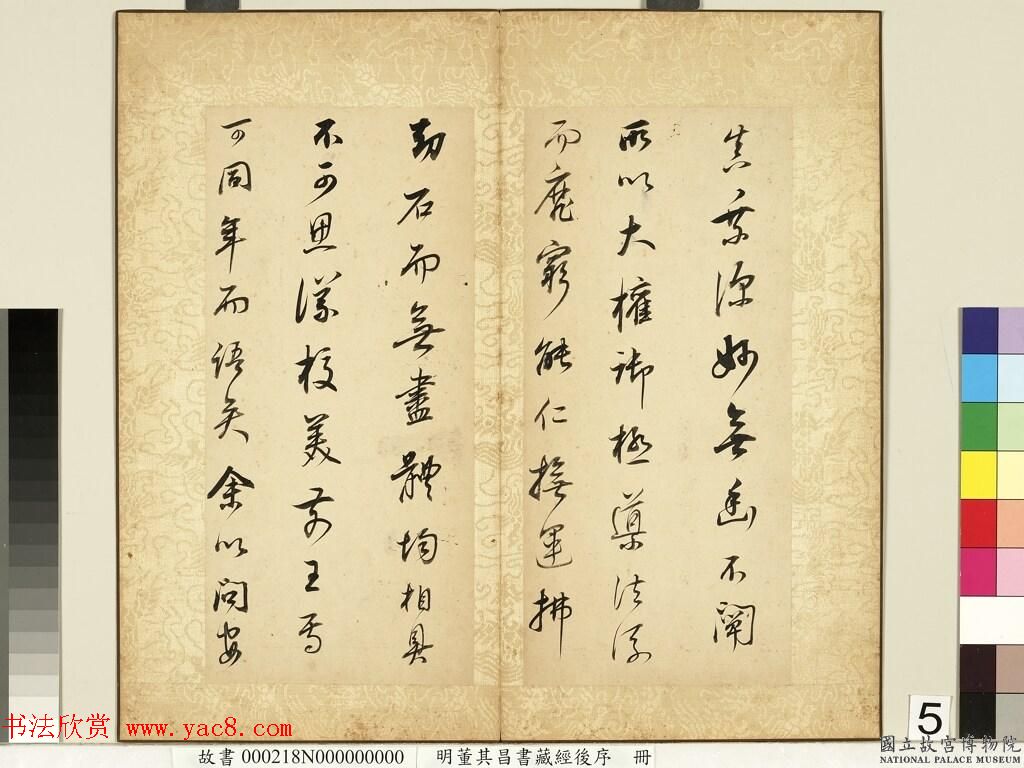 真乘深妙無幽不闡
所以大權御極導法流
而靡窮能仁撫運拂
劫石而無盡體均相具
不可思議校美前王焉
可同年而語矣余以問安
书法欣赏 www.yac8.com
故書 000218N000000000 明董其昌書藏經後序 冊
5
國立故宮博物院
NATIONAL PALACE MUSEUM